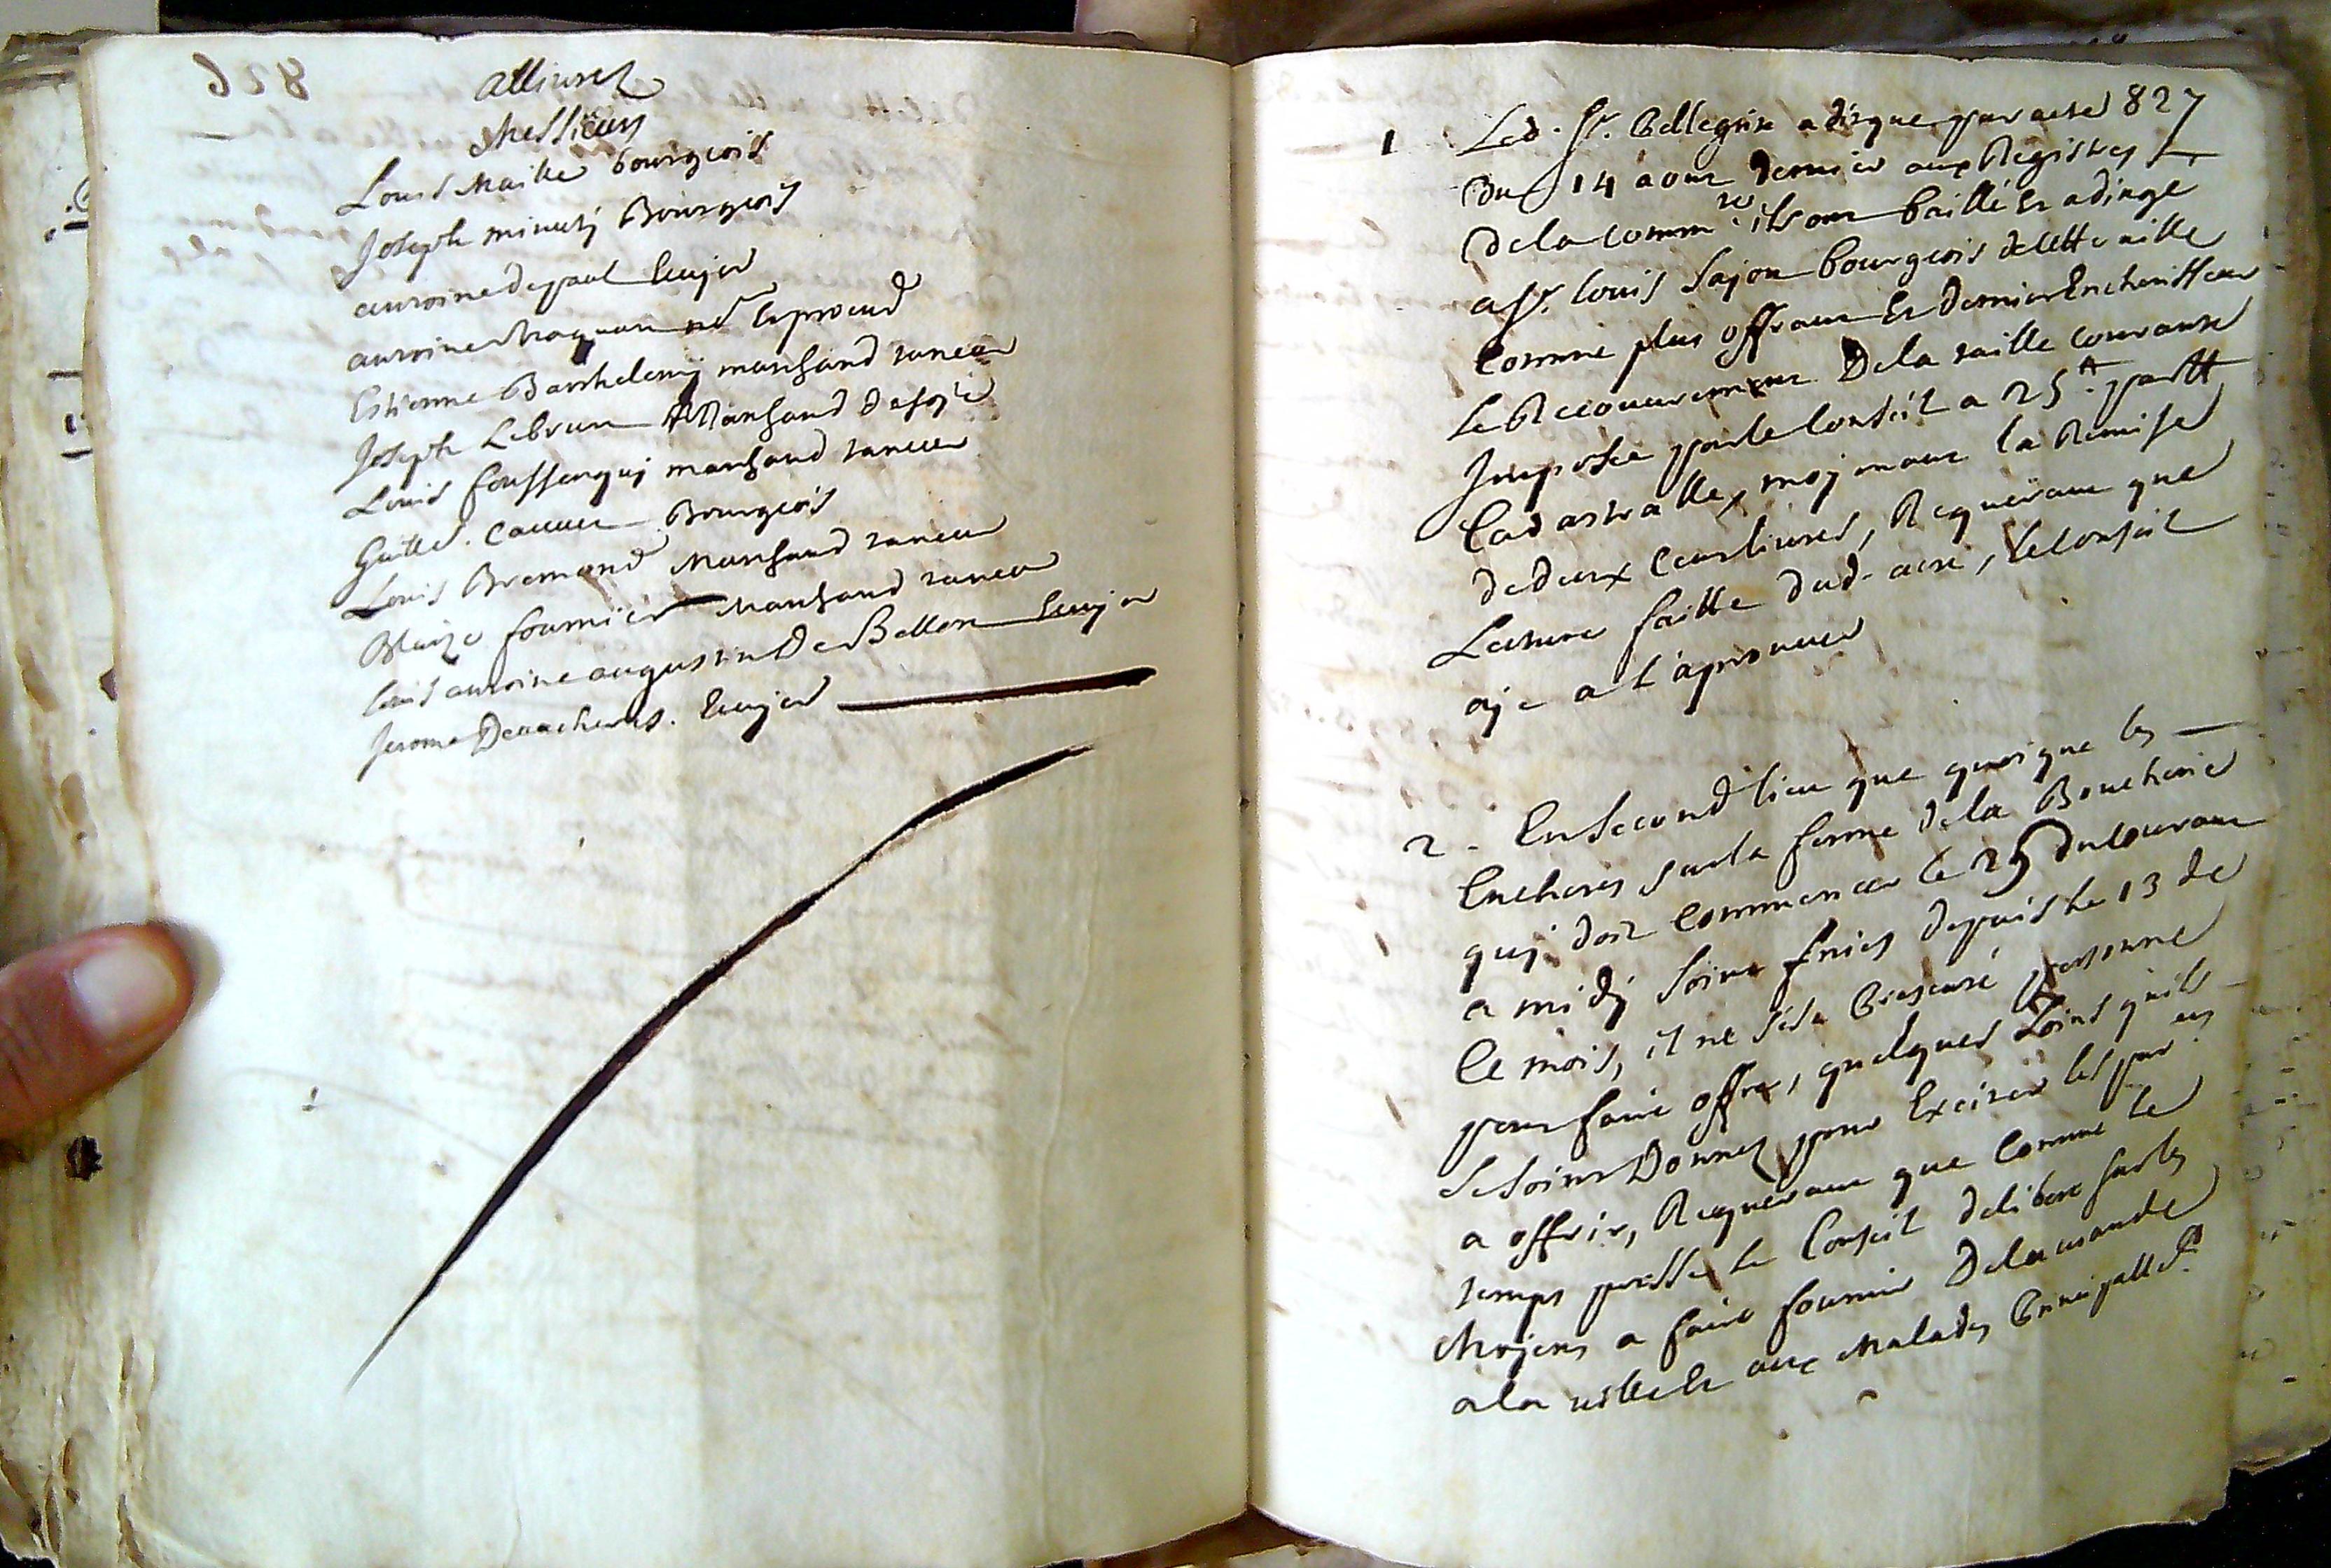 826
allivrez
Messieurs
Louis Maille bourgeois
Joseph minuty Bourgeois
antoine de paul Ecuyer
antoine
Estienne Barthelemy marchand taneur
Joseph Lebrun Marchand de soye
Louis Foussenquy marchand taneur
Guille. Bourgeois
Louis Bremond Marchand taneur
Blaize fournier Marchand taneur
louis antoine augustin De Bellon Ecuyer
Jerome De Ecuyer
827
1 Led. Sr. Pellegrin a dit que par acte
Du 14 aout dernier aux Registres
de la comm.té ils ont baillé Et adjugé
a Sr. louis Sajou bourgeois de cette ville
Comme plus offrant Et dernier Encherisseur
Le Recouvrement De la taille courante
Imposée par le Conseil a 25 # par #
Cadastralle, moyenant la Remise
de deux Cent livres, Requerant que
Lecture faitte dud. acte, le Conseil
aye a l'aprouver
2 - En Second lieu que quoique les
Encheres sur la ferme de la Boucherie
quy doit Commencer le 25 du courant
a midy soint finies depuis le 13 de
Ce mois, il ne s'est presenté personne
pour faire offres, quelques Soins quils
se soint Donnez pour Exciter les par.ers
a offrir, Requerant que Comme le
temps presse le Conseil delibere sur les
Moyens a faire fournir De la viande
a la ville Et aux Malades Principalle.t